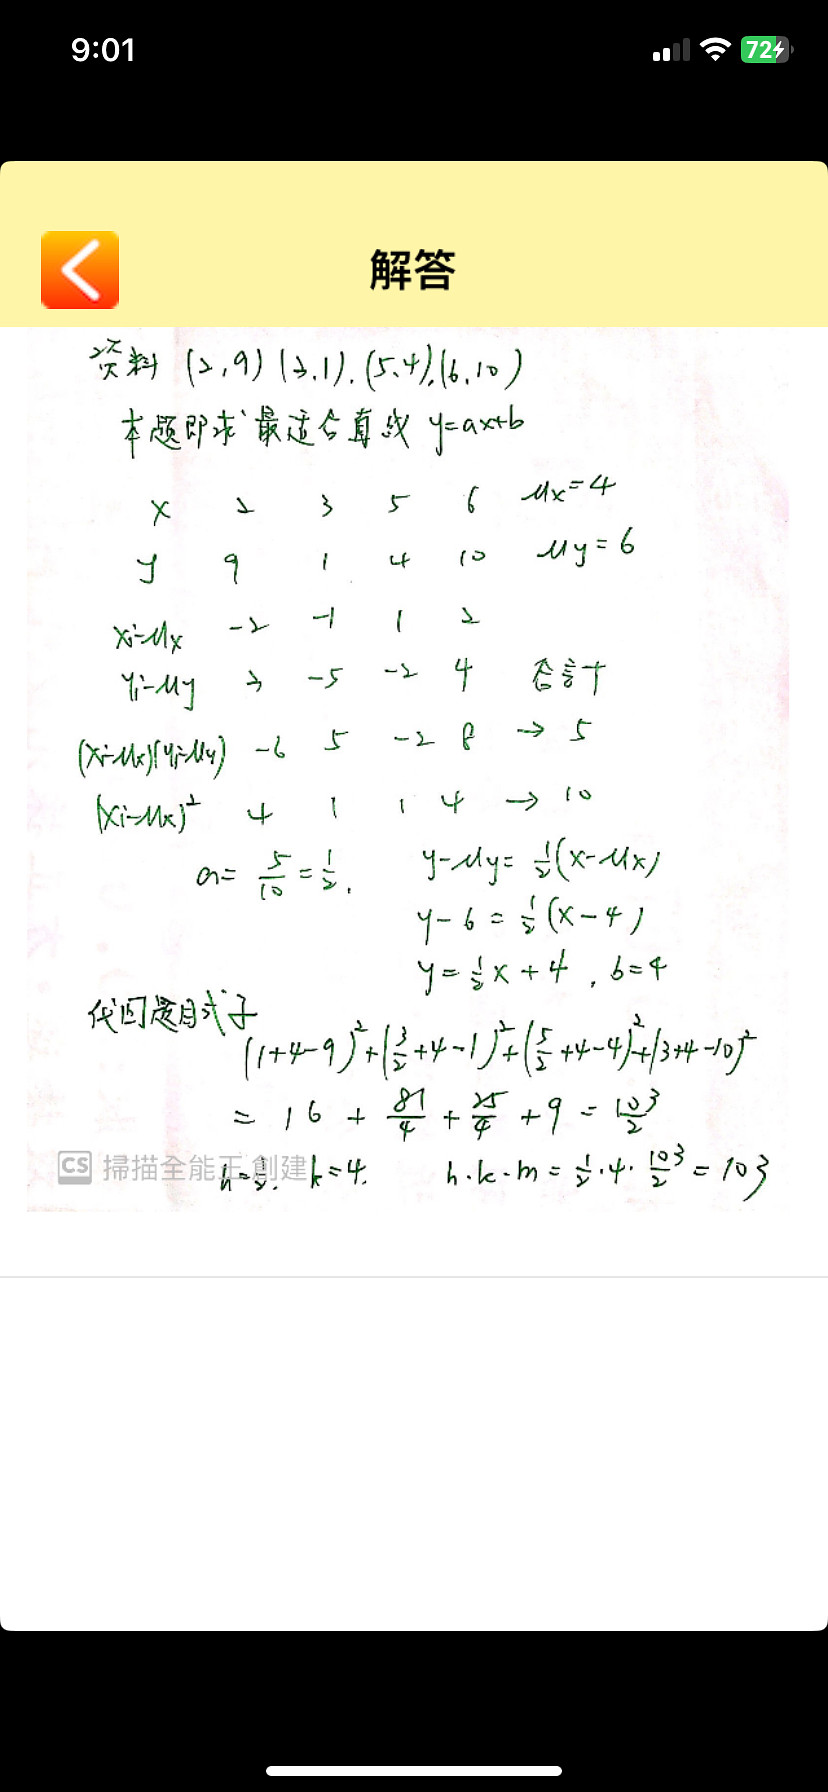 9:01
72
解答
资料 (2,9) (3,1).(5,4).(6,10)
本题即求最适合直线 y=ax+b
x 2 3 5 6 μx=4
y 9 1 4 10 μy=6
xi-μx -2 -1 1 2
yi-μy 3 -5 -2 4 合計
(xi-μx)(yi-μy) -6 5 -2 8 → 5
(xi-μx)² 4 1 1 4 → 10
a= 5/10 = 1/2. y-μy= 1/2(x-μx)
y-6 = 1/2(x-4)
y= 1/2x+4 , b=4
代回题目式子
(1+4-9)²+(3/2+4-1)²+(5/2+4-4)²+(3+4-10)²
= 16 + 81/4 + 25/4 +9 = 103/2
CS 掃描全能王 創建
h=1/2. k=4. h.k.m = 1/2.4.103/2 = 103